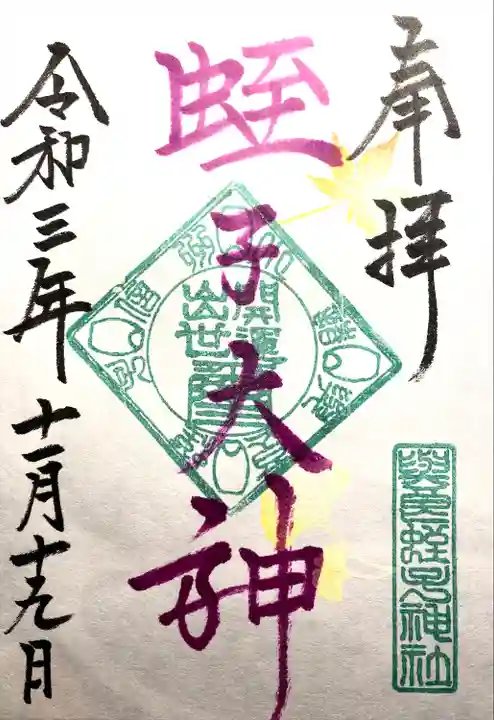 奉拝
蛭子大神
開運
出世
與兵衛蛭児神社
令和三年十一月十九日